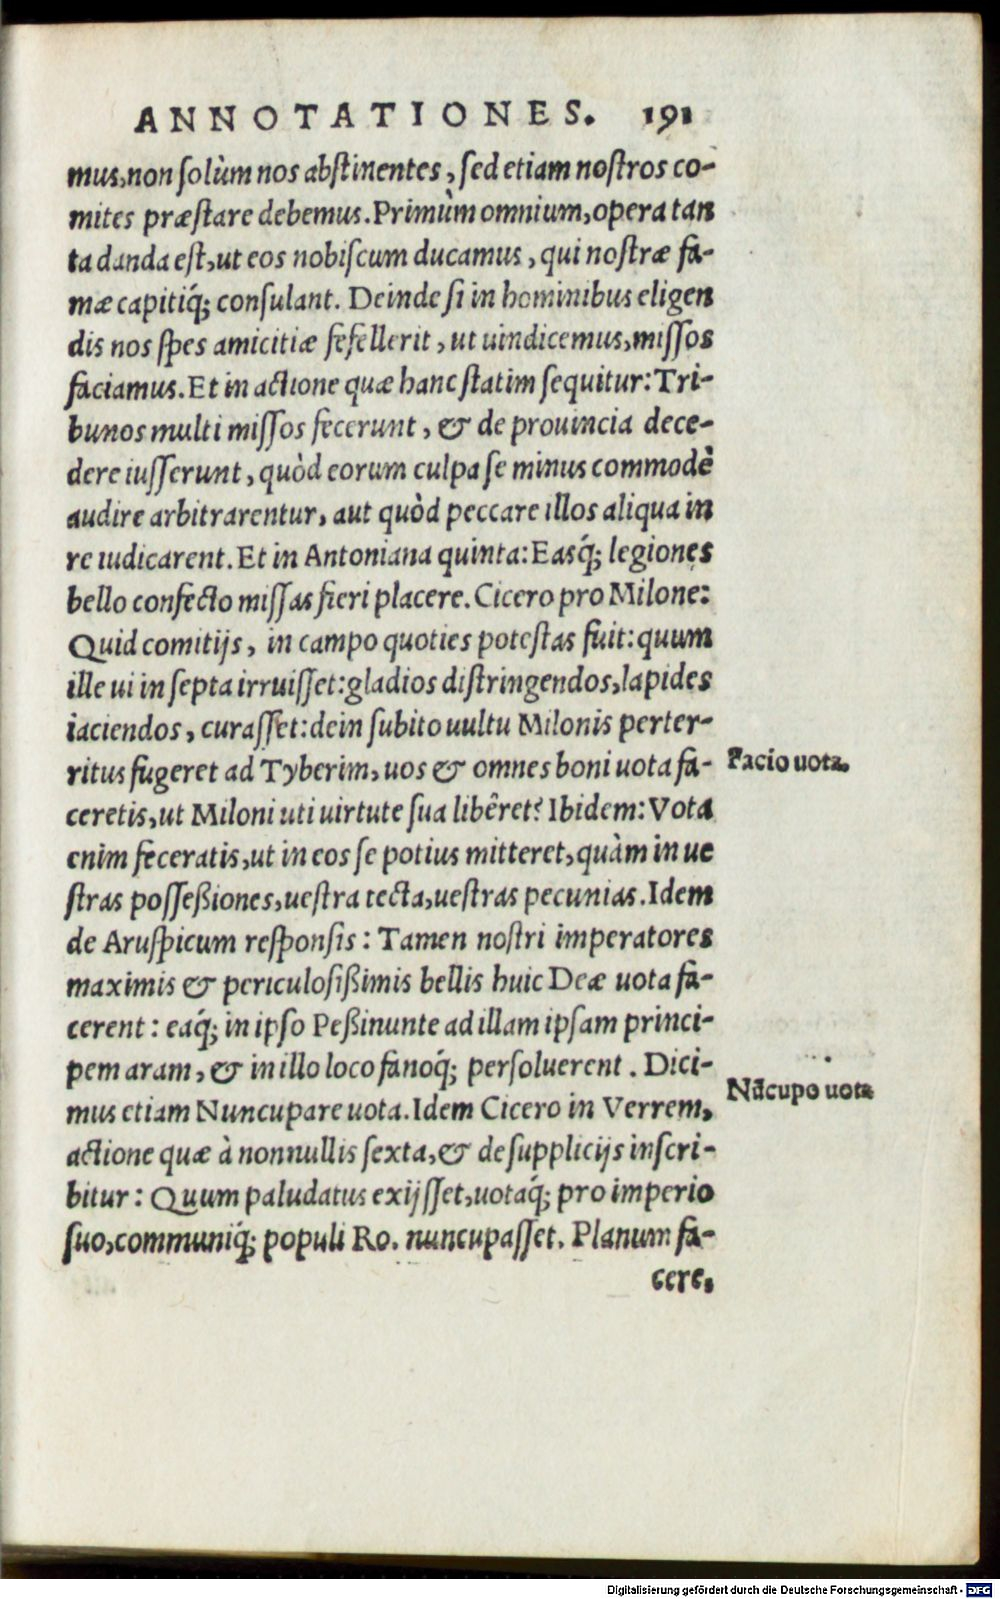 ANNOTATIONES. 191
mus, non ſolùm nos abſtinentes, ſed etiam noſtros co-
mites præſtare debemus. Primùm omnium, opera tan
ta danda eſt, ut eos nobiſcum ducamus, qui noſtræ fa-
mæ capitiq́; conſulant. Deinde ſi in hominibus eligen
dis nos ſpes amicitiæ fefellerit, ut uindicemus, miſſos
faciamus. Et in actione quæ hanc ſtatim ſequitur: Tri-
bunos multi miſſos fecerunt, & de prouincia dece-
dere iuſſerunt, quòd eorum culpa ſe minus commodè
audire arbitrarentur, aut quòd peccare illos aliqua in
re iudicarent. Et in Antoniana quinta: Easq́; legiones
bello confecto miſſas fieri placere. Cicero pro Milone:
Quid comitijs, in campo quoties poteſtas fuit: quum
ille ui in ſepta irruiſſet: gladios diſtringendos, lapides
iaciendos, curaſſet: dein ſubito uultu Milonis perter-
ritus fugeret ad Tyberim, uos & omnes boni uota fa-
Facio uota.
ceretis, ut Miloni uti uirtute ſua libêret? Ibidem: Vota
enim feceratis, ut in eos ſe potius mitteret, quàm in ue
ſtras poſſeßiones, ueſtra tecta, ueſtras pecunias. Idem
de Aruſpicum reſponſis: Tamen noſtri imperatores
maximis & periculoſißimis bellis huic Deæ uota fa-
cerent: eaq́; in ipſo Peßinunte ad illam ipſam princi-
pem aram, & in illo loco fanoq́; perſoluerent. Dici-
Nūcupo uota
mus etiam Nuncupare uota. Idem Cicero in Verrem,
actione quæ à nonnullis ſexta, & de ſupplicijs inſcri-
bitur: Quum paludatus exijſſet, uotaq́; pro imperio
ſuo, communiq́; populi Ro. nuncupaſſet. Planum fa-
cere,
Digitalisierung gefördert durch die Deutsche Forschungsgemeinschaft - DFG